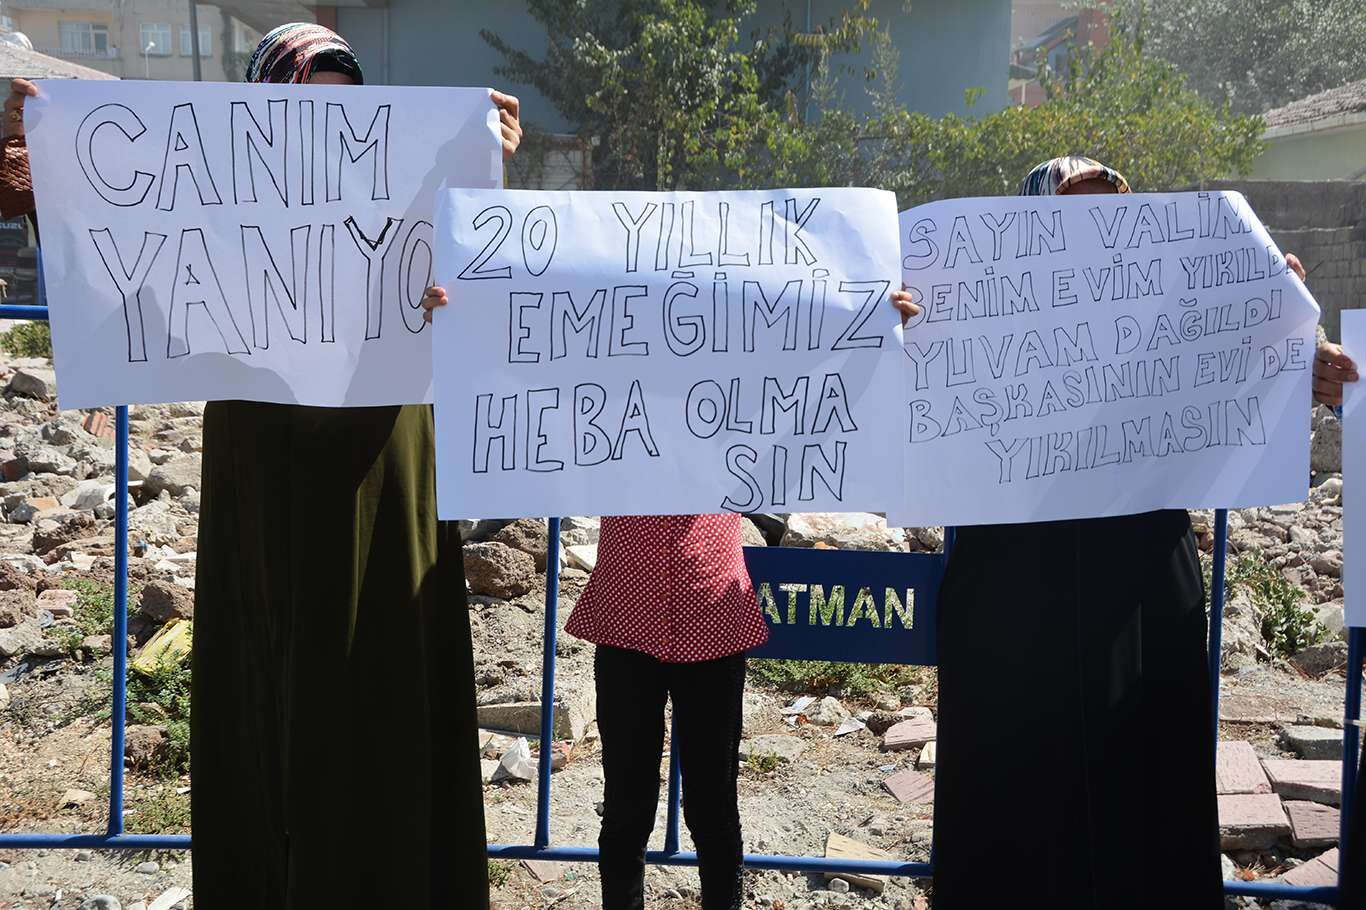 CANIM
YANIYO
20 YILLIK
EMEĞİMİZ
HEBA OLMA
SIN
SAYIN VALİM
BENİM EVİM YIKILDI
YUVAM DAĞILDI
BAŞKASININ EVİ DE
YIKILMASIN
ATMAN